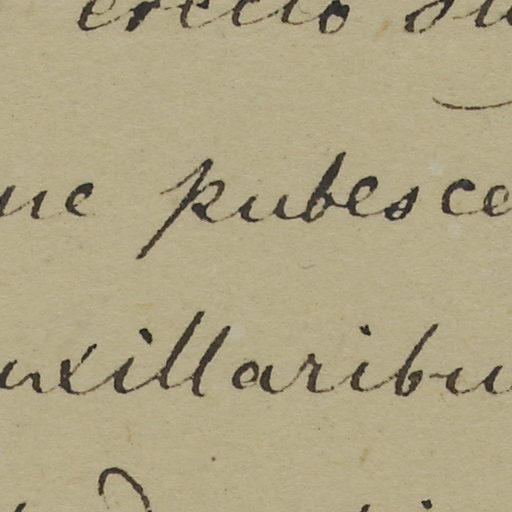 erecto
ue pubesce
uxillaribu